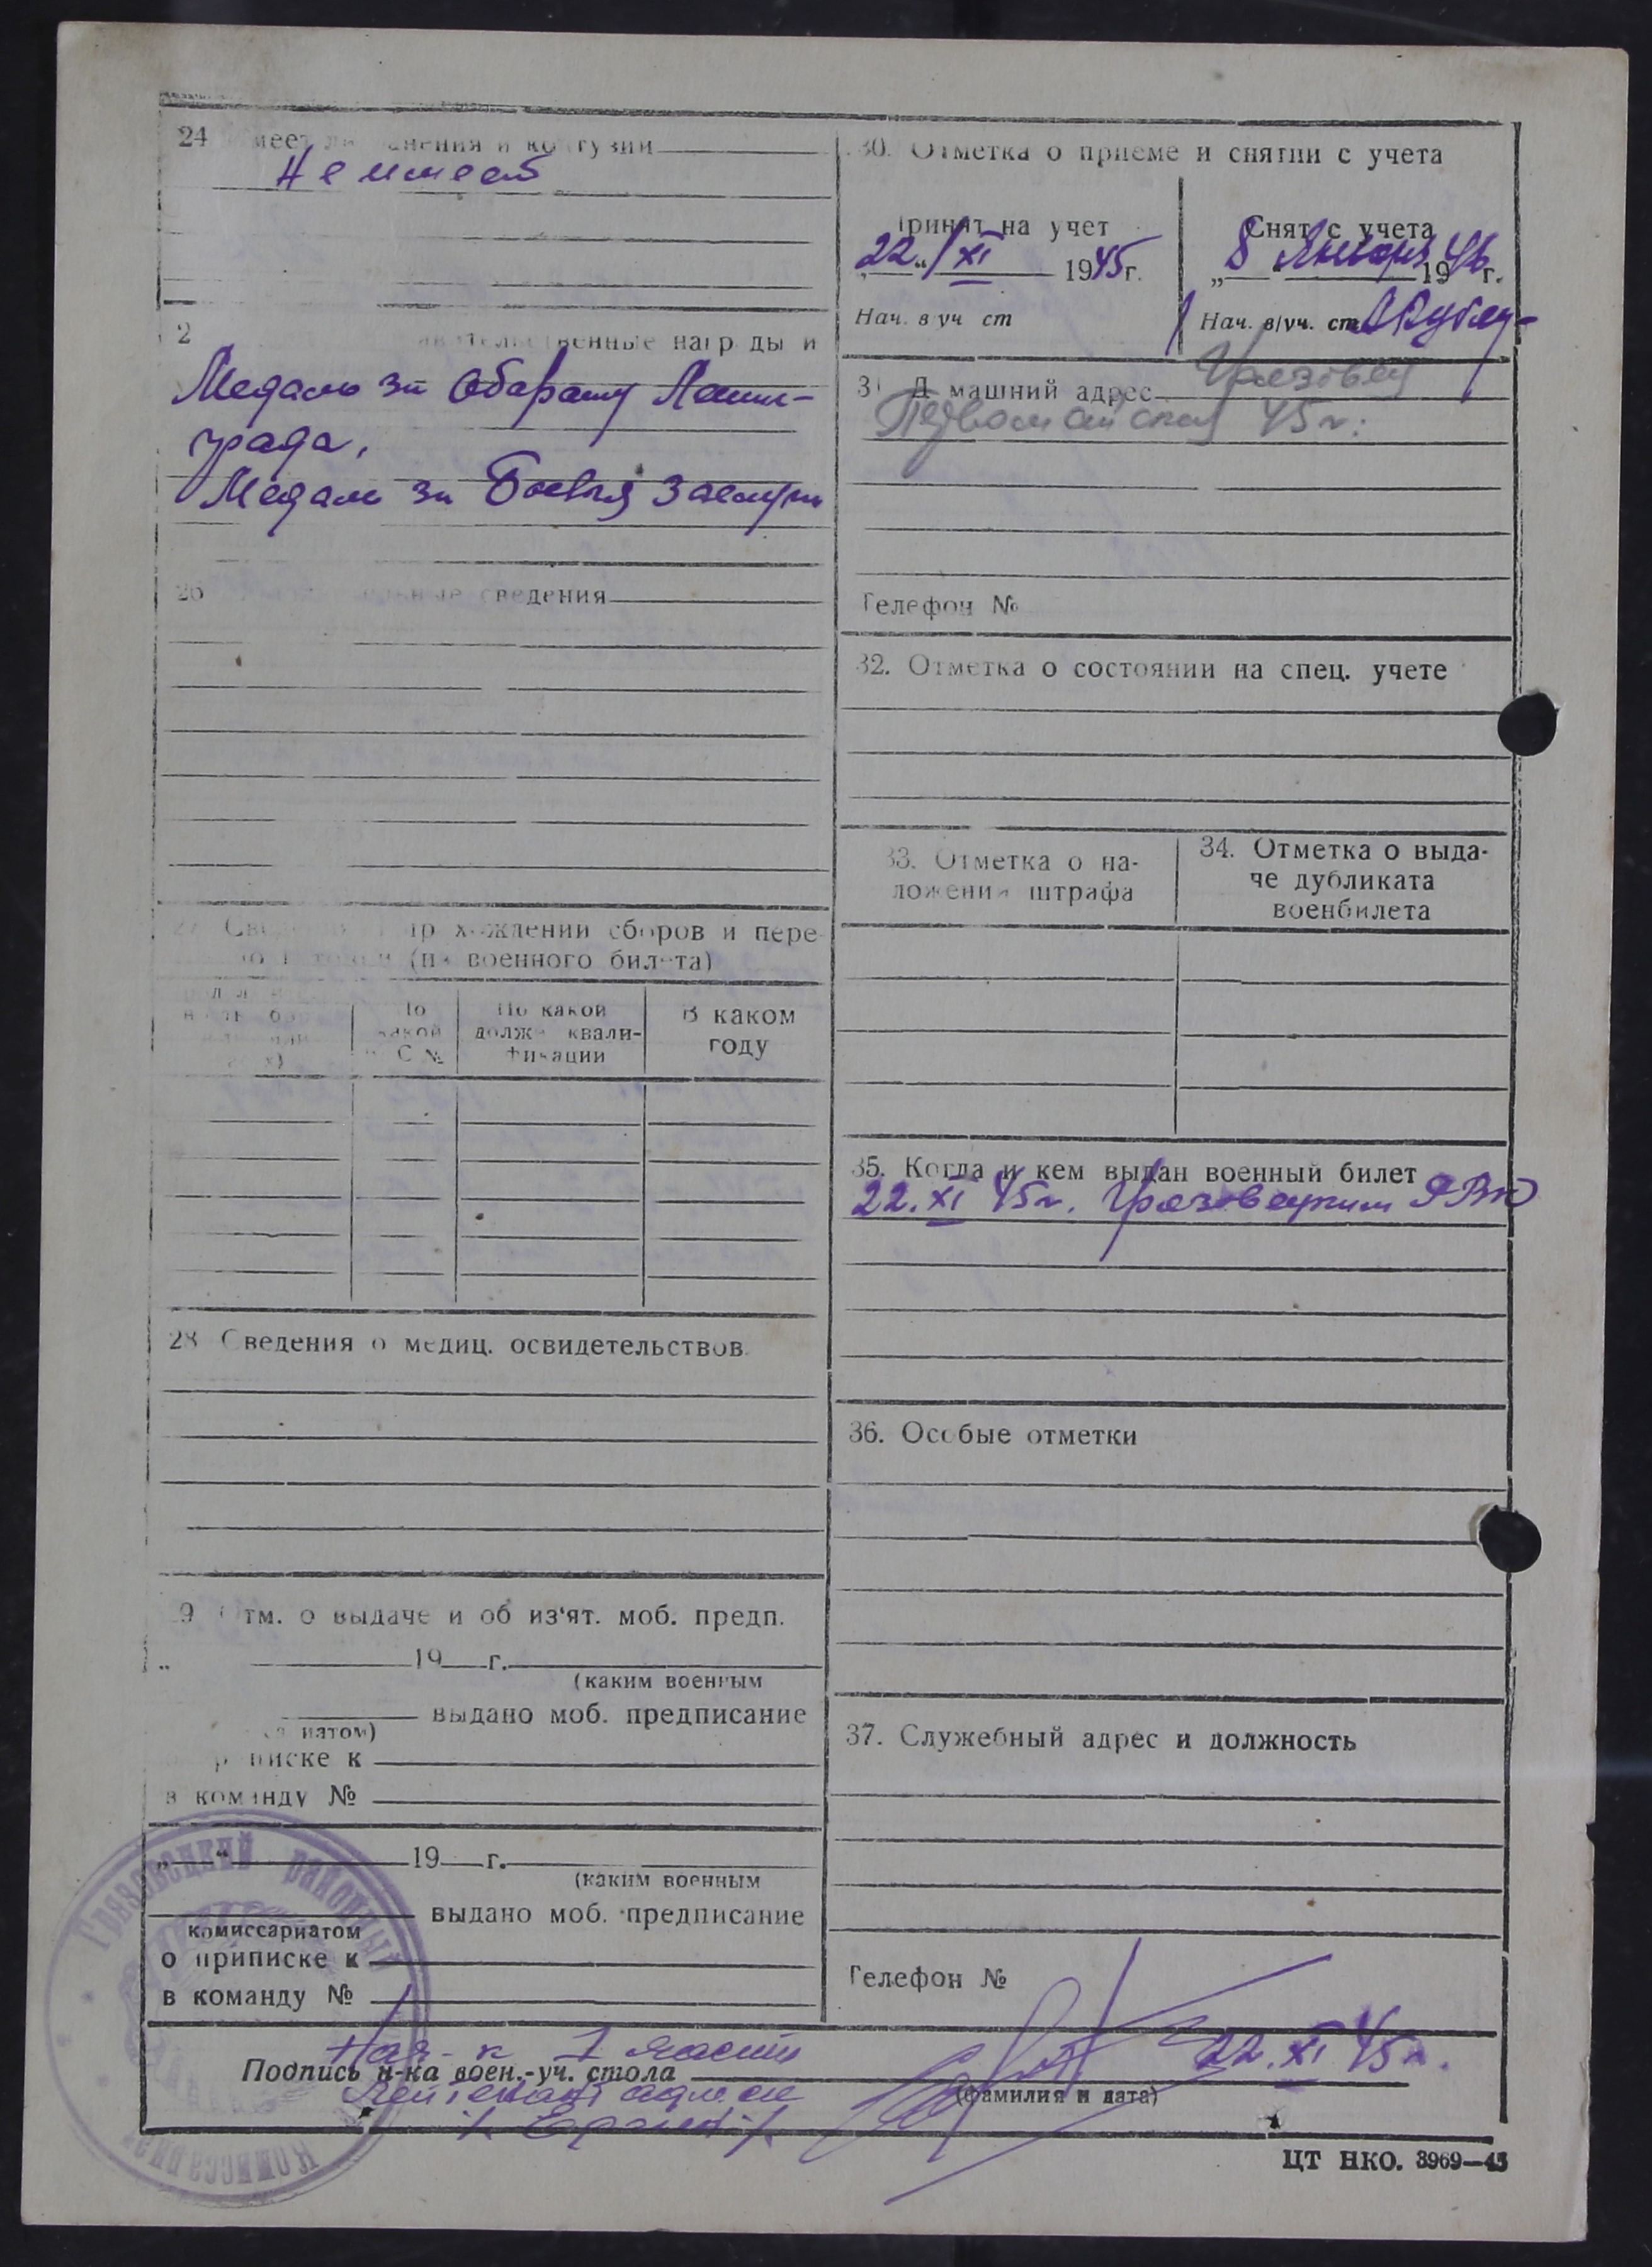 24 меет ли анения и ко гузии
Не имеет
2 ственные нагр ды и
Медаль за Оборону Ленин-
града,
Медаль за Боевыя Заслуги
26 сведения
хождении сборов и пере
(п военного бил та)
По какой
долж квали-
фикации
В каком
году
28 Сведения о медиц. освидетельствов.
9 тм. о выдаче и об из'ят. моб. предп.
19 г.
(каким военным
выдано моб. предписание
иатом)
писке к
в команду №
„ “ 19 г.
(каким военным
выдано моб. предписание
комиссариатом
о приписке к
в команду №
30. Отметка о приеме и снятии с учета
Принят на учет
22 “ XI 1945г.
Нач. в уч ст
Снят с учета
„ 8 “ Января 1946 г.
Нач. в/уч. ст.
31 Д машний адрес Грязовец
Первомайская 45
Телефон №
32. Отметка о состоянии на спец. учете
33. Отметка о на-
ложении штрафа
34. Отметка о выда-
че дубликата
военбилета
35. Когда и кем выдан военный билет
22. XI 45г. Грязовецким РВК
36. Особые отметки
37. Служебный адрес и должность
Телефон №
Нач-к 1 части
Подпись н-ка воен.-уч. стола 22. XI 45г.
(фамилия и дата)
Лейтенант
Грязовецкий районный
Комиссариат
ЦТ НКО. 3969—45